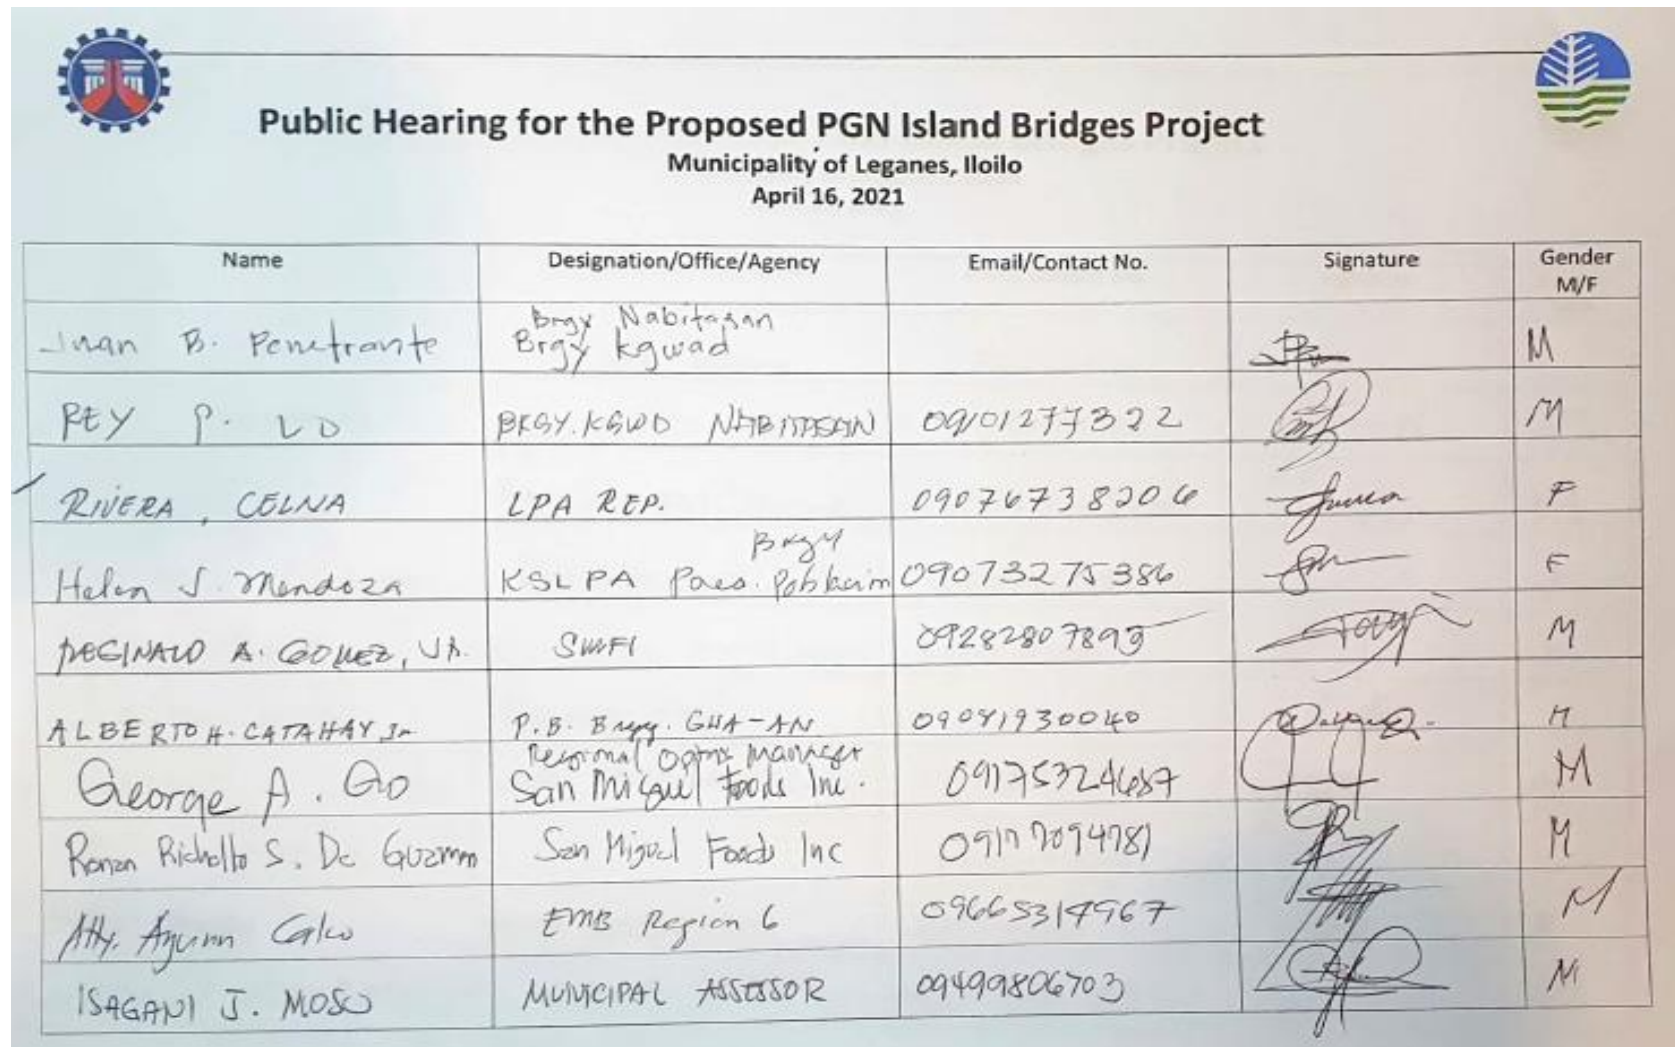 Public Hearing for the Proposed PGN Island Bridges Project
Municipality of Leganes, Iloilo
April 16, 2021
Name Designation/Office/Agency Email/Contact No. Signature Gender M/F
Juan B. Penetrante Brgy Nabitasan Brgy Kgwad M
REY P. LO BRGY. KGWD NABITASAN 09101277322 M
RIVERA, CELNA LPA REP. 09076738206 F
Helen S. Mendoza KSLPA Brgy 09073275386 F
REGINALD A. GOMEZ, JR. SMFI 09282807893 M
ALBERTO H. CATAHAY Jr P.B. Brgy. GUA-AN 09081930040 M
George A. Go Regional Optns Manager San Miguel Foods Inc. 09175324687 M
S. De Guzman San Miguel Foods Inc 09177094781 M
Atty. EMB Region 6 09665314967 M
ISAGANI J. MOSO MUNICIPAL ASSESSOR 09499806703 M